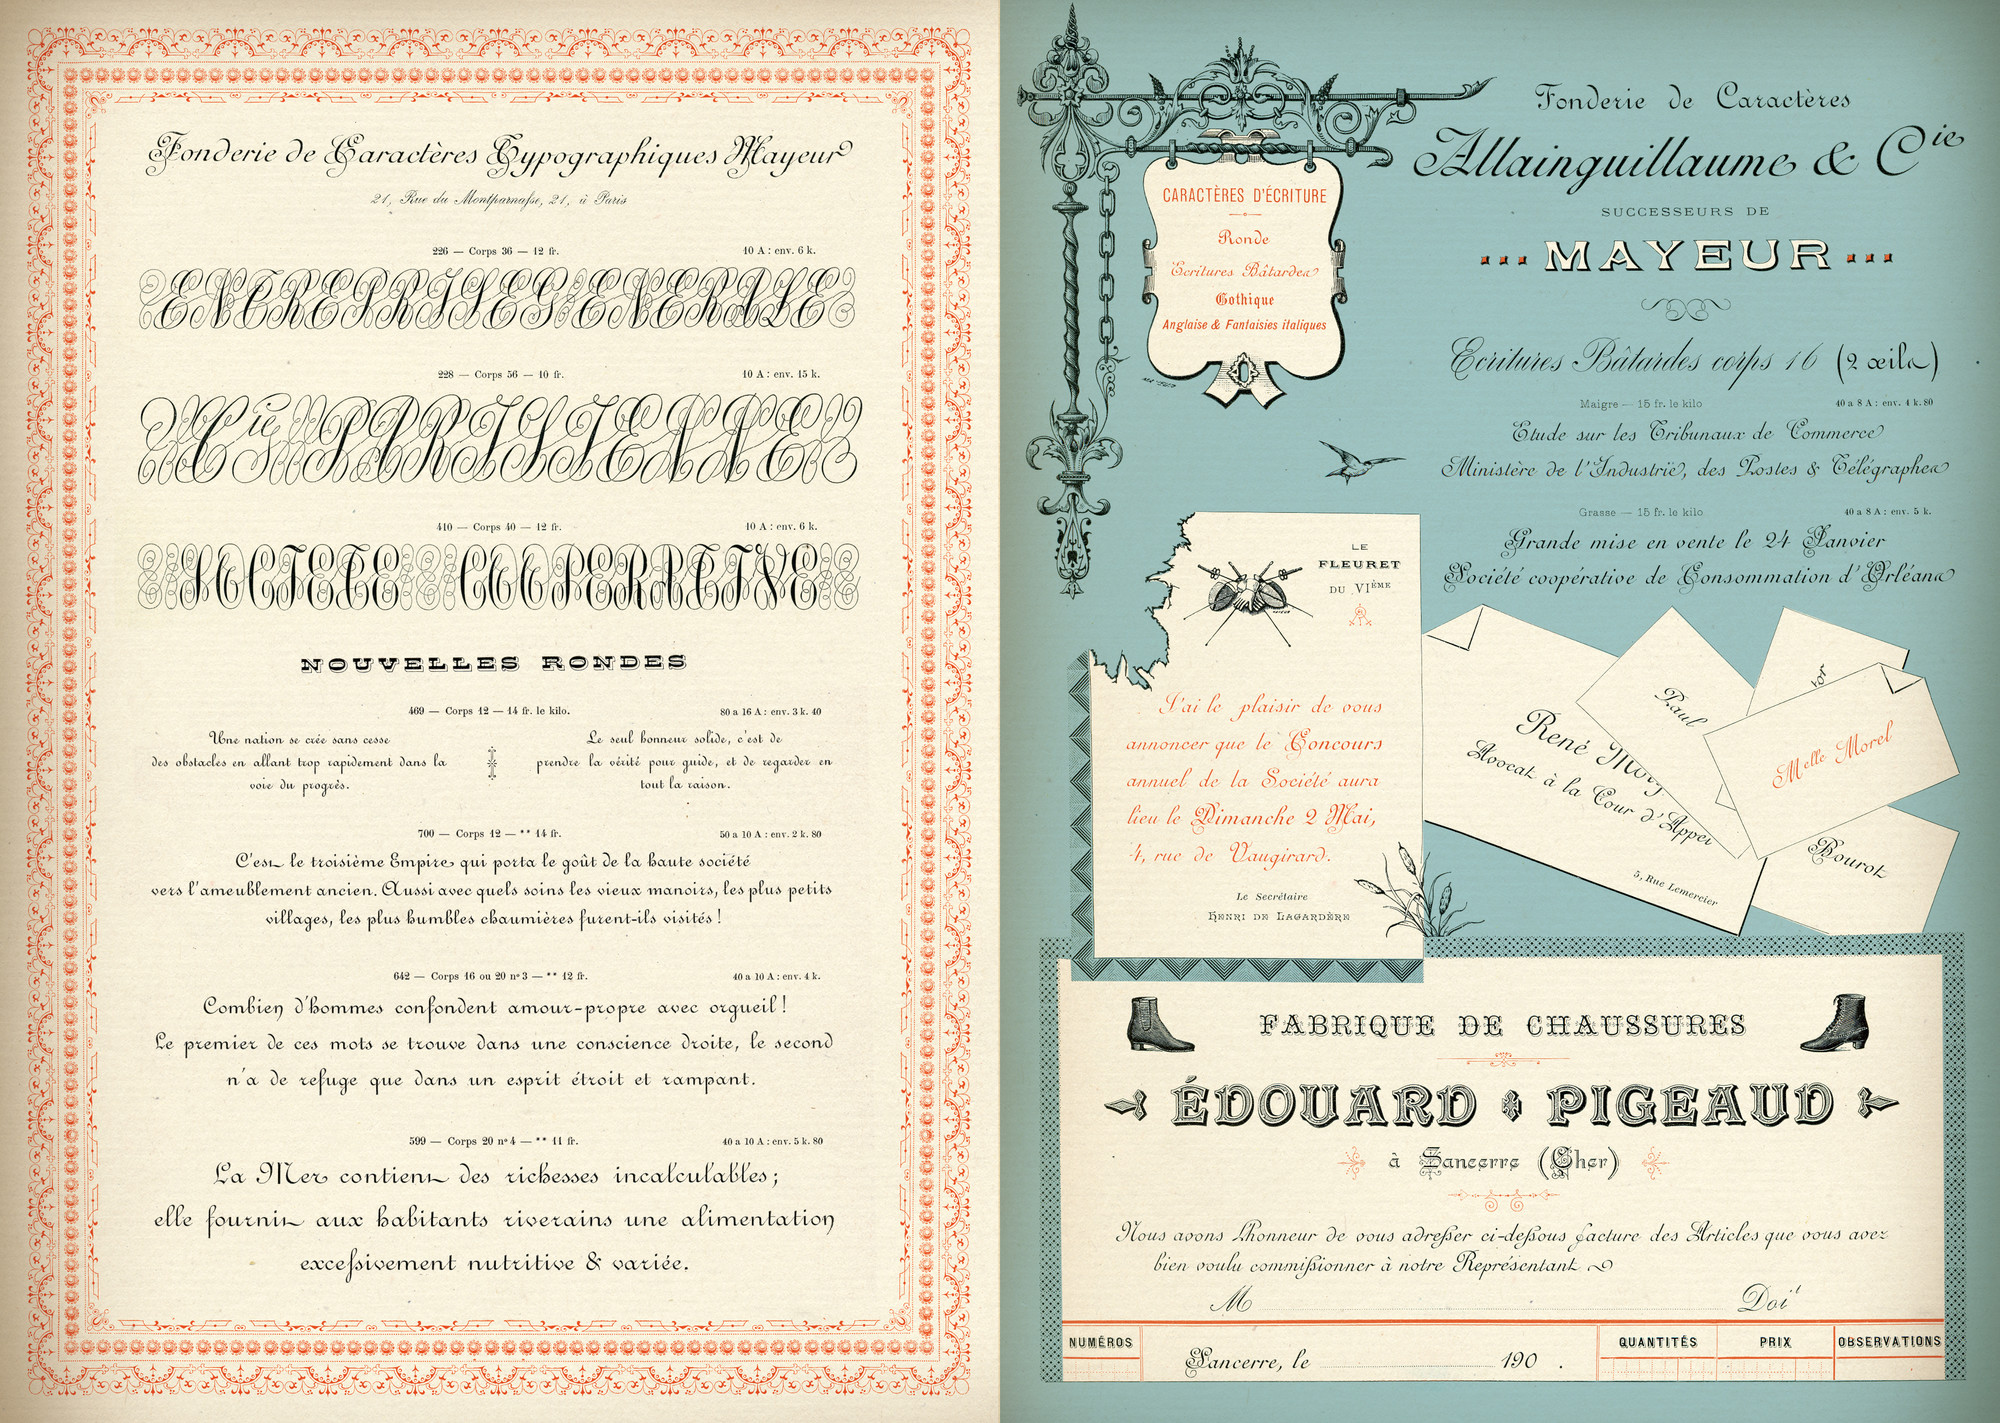 Fonderie de Caractères Typographiques Mayeur
21, Rue du Montparnasse, 21, à Paris
226 — Corps 36 — 12 fr. 10 A : env. 6 k.
ENTREPRISE GENERALE
228 — Corps 56 — 10 fr. 10 A : env. 15 k.
Cie PARISIENNE
410 — Corps 40 — 12 fr. 10 A : env. 6 k.
SOCIETE COOPERATIVE
NOUVELLES RONDES
469 — Corps 12 — 14 fr. le kilo. 80 a 16 A : env. 3 k. 40
Une nation se crée sans cesse
des obstacles en allant trop rapidement dans la
voie du progrès.
Le seul honneur solide, c'est de
prendre la vérité pour guide, et de regarder en
tout la raison.
700 — Corps 12 — ** 14 fr. 50 a 10 A : env. 2 k. 80
C'est le troisième Empire qui porta le goût de la haute société
vers l'ameublement ancien. Aussi avec quels soins les vieux manoirs, les plus petits
villages, les plus humbles chaumières furent-ils visités !
642 — Corps 16 ou 20 nº 3 — ** 12 fr. 40 a 10 A : env. 4 k.
Combien d'hommes confondent amour-propre avec orgueil !
Le premier de ces mots se trouve dans une conscience droite, le second
n'a de refuge que dans un esprit étroit et rampant.
599 — Corps 20 nº 4 — ** 11 fr. 40 a 10 A : env. 5 k. 80
La Mer contient des richesses incalculables ;
elle fournit aux habitants riverains une alimentation
excessivement nutritive & variée.
Fonderie de Caractères
Allainguillaume & Cie
SUCCESSEURS DE
MAYEUR
CARACTÈRES D'ÉCRITURE
Ronde
Ecritures Bâtardes
Gothique
Anglaise & Fantaisies italiques
Ecritures Bâtardes corps 16 (2 œils)
Maigre — 15 fr. le kilo 40 a 8 A : env. 4 k. 80
Etude sur les Tribunaux de Commerce
Ministère de l'Industrie, des Postes & Télégraphes
Grasse — 15 fr. le kilo 40 a 8 A : env. 5 k.
Grande mise en vente le 24 Janvier
Société coopérative de Consommation d'Orléans
LE
FLEURET
DU VIÈME
J'ai le plaisir de vous
annoncer que le Concours
annuel de la Société aura
lieu le Dimanche 2 Mai,
4, rue de Vaugirard.
Le Secrétaire
HENRI DE LAGARDÈRE
René
Avocat à la Cour d'Appel
5, Rue Lemercier
Paul
Melle Morel
Bourot
FABRIQUE DE CHAUSSURES
ÉDOUARD PIGEAUD
à Sancerre (Cher)
Nous avons l'honneur de vous adresser ci-dessous facture des Articles que vous avez
bien voulu commissionner à notre Représentant
M Doit
NUMÉROS QUANTITÉS PRIX OBSERVATIONS
Sancerre, le 190 .